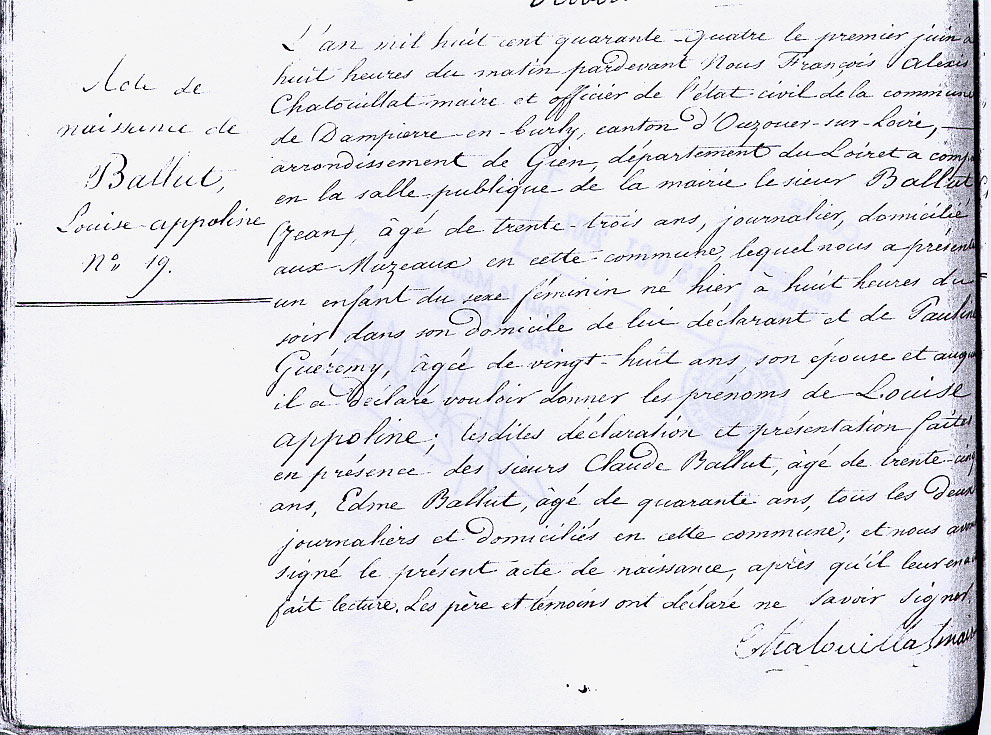 Acte de
naissance de
Ballut,
Louise-appoline
N° 19.
L'an mil huit cent quarante-quatre le premier juin à
huit heures du matin pardevant Nous François Alexis
Chatouillat maire et officier de l'état civil de la commune
de Dampierre-en-burly, canton d'Ouzouer-sur-Loire,
arrondissement de Gien, département du Loiret a comp
en la salle publique de la mairie le sieur Ballut
(Jean), âgé de trente-trois ans, journalier, domicilié
aux Muzeaux en cette commune, lequel nous a présenté
un enfant du sexe féminin né hier à huit heures du
soir dans son domicile de lui déclarant et de Pauline
Guéremy, âgée de vingt-huit ans, son épouse et auqu
il a déclaré vouloir donner les prénoms de Louise
appoline; lesdites déclaration et présentation faites
en présence des sieurs Claude Ballut, âgé de trente-cinq
ans, Edme Ballut, âgé de quarante ans, tous les deux
journaliers et domiciliés en cette commune; et nous avons
signé le présent acte de naissance, après qu'il leur en a
fait lecture. Les père et témoins ont déclaré ne savoir signer.
Chatouillat maire